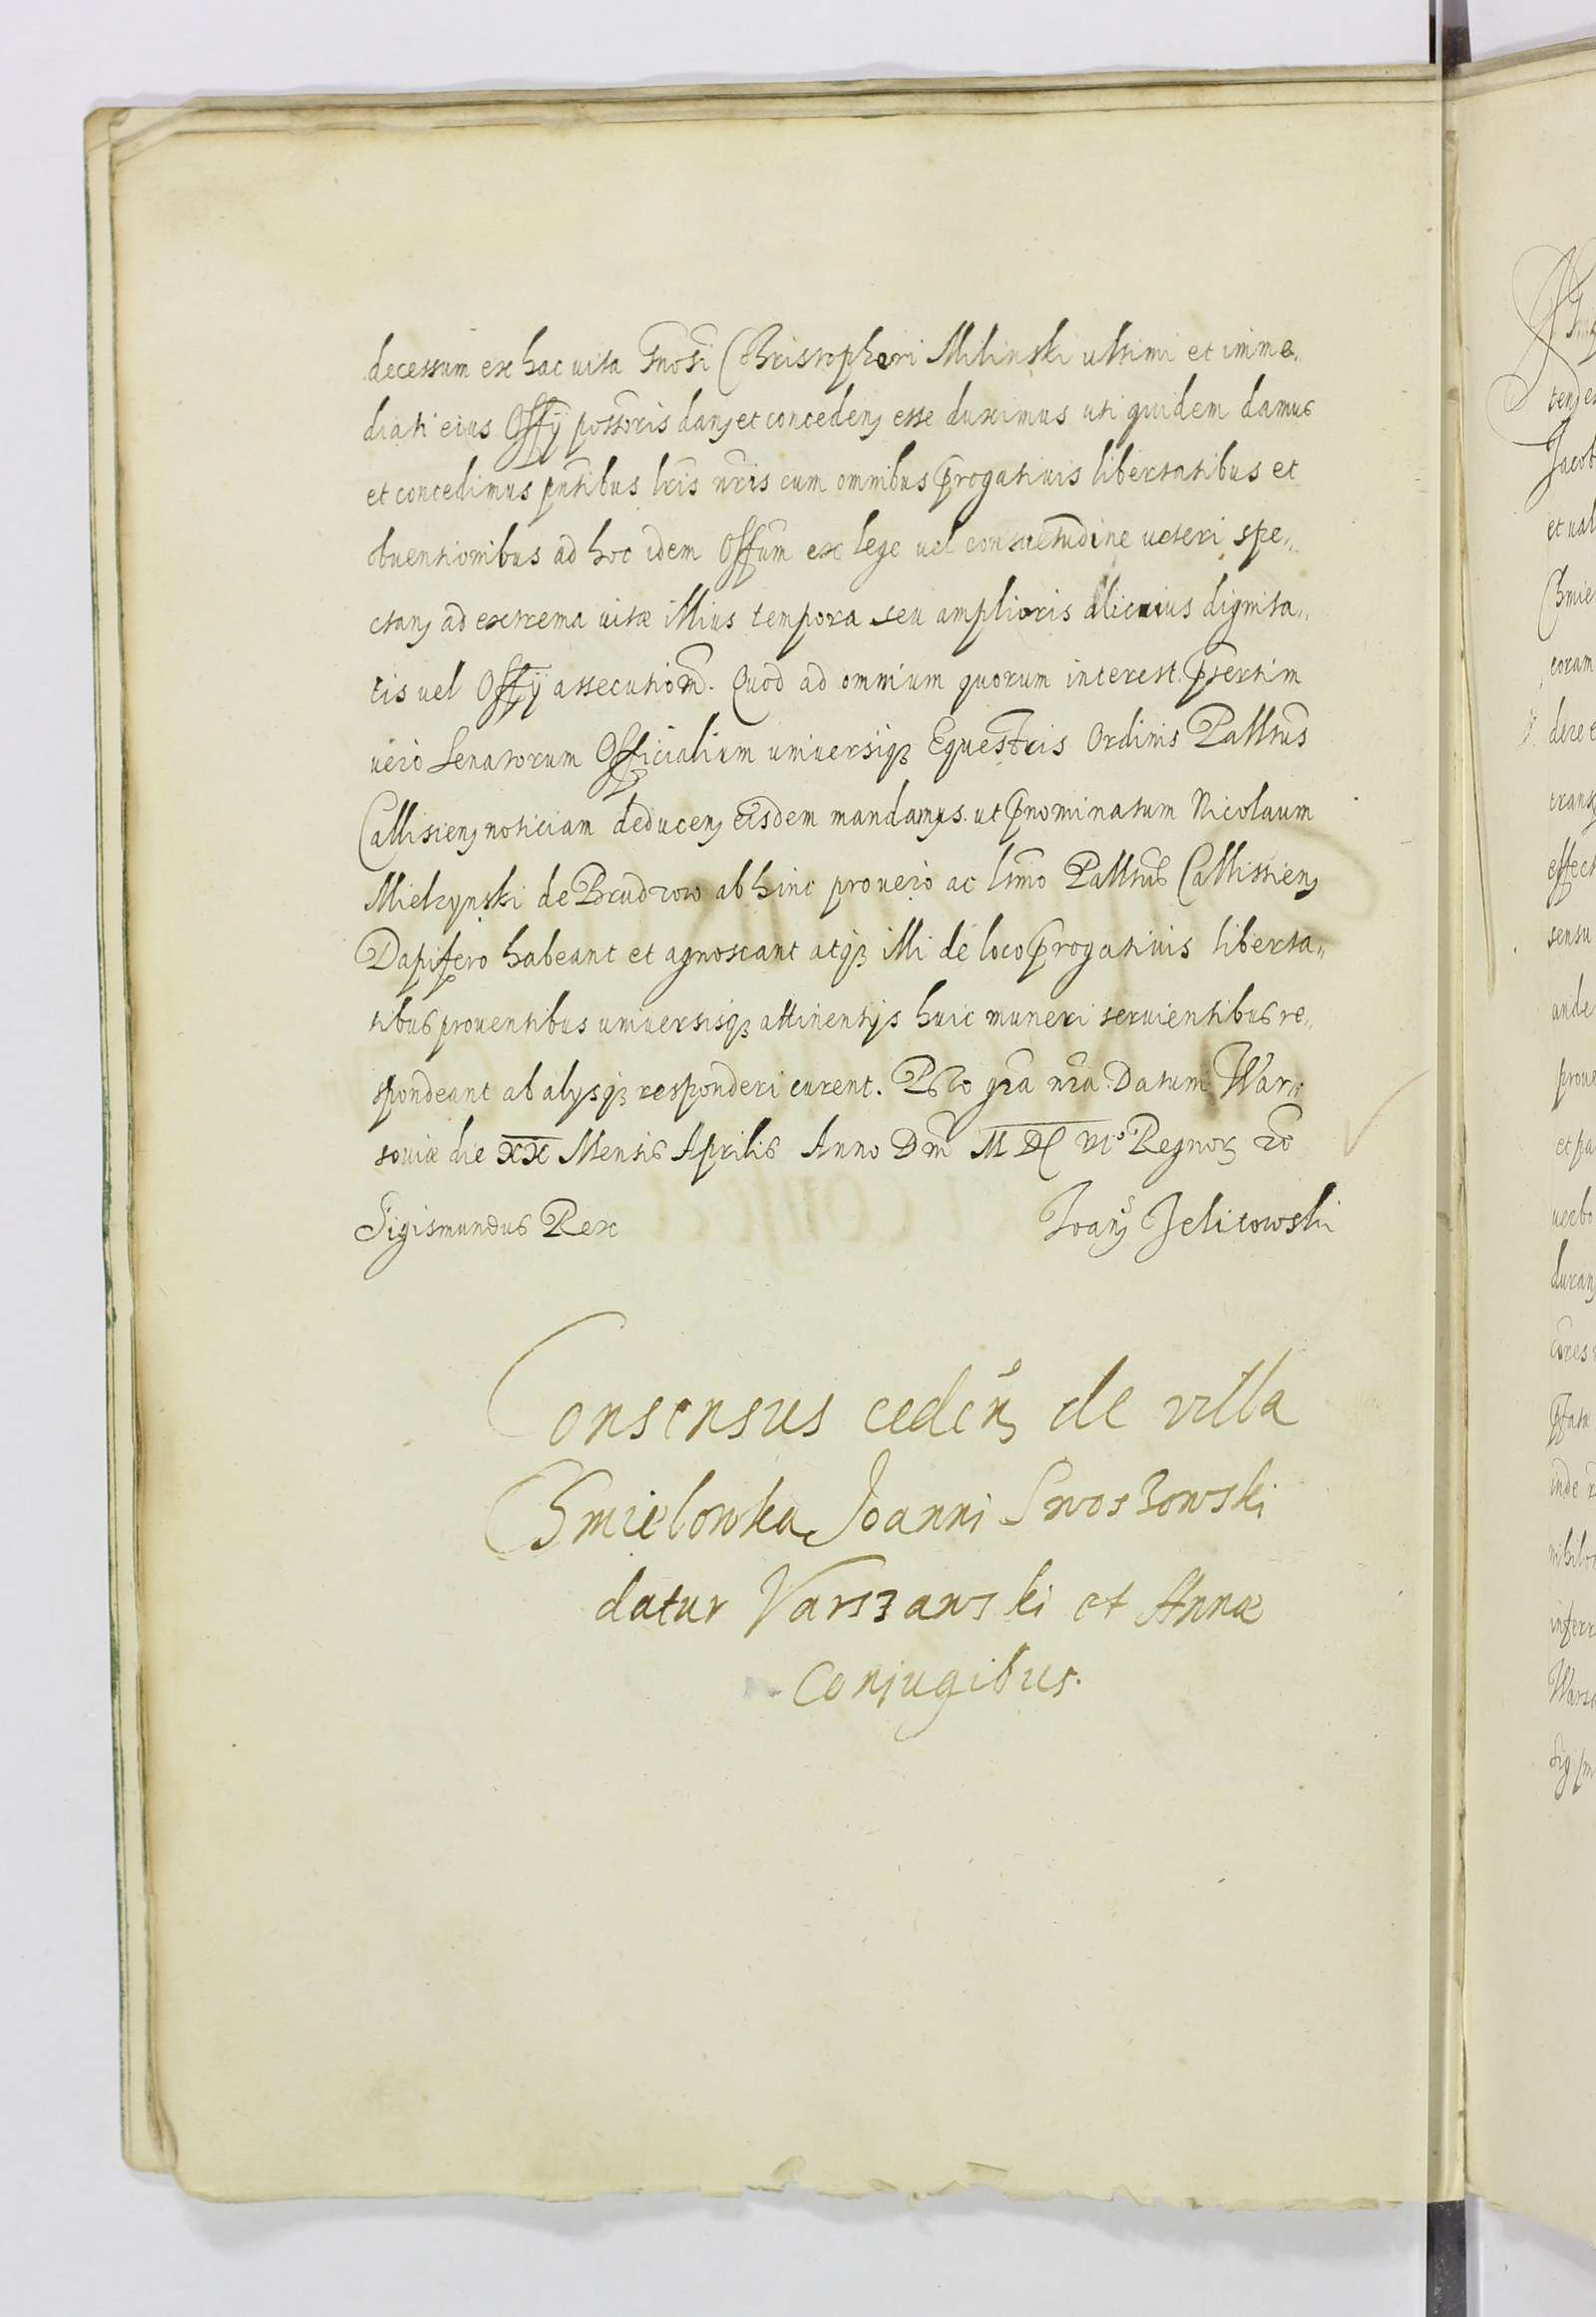 decessum ex hac uita Gnosi Christopheri Milinski ultimi et imme„
diati eius Offy possoris danꝫ et concedenꝫ esse duximus uti quidem damus
et concedimus pntibus lris nris cum omnibus prrogatiuis libertatibus et
obuentionibus ad hoc idem Offum ex lege uel consuetudine ueteri spe„
ctanꝫ ad extrema uitæ illius tempora seu amplioris alicuius dignita„
tis uel Offÿ assecutiom. Quod ad omnium quorum interest prsertim
uero Senatorum Officialium uniuersiqꝫ Equestris Ordinis Pallnus
Callisienꝫ noticiam deducenꝫ eisdem mandamus. ut prnominatum Nicolaum
Mielzynski de Brudzow abhinc pro uero ac lsmo Pallnus Callissienꝫ
Dapifero habeant et agnoscant atqꝫ illi de loco prrogatiuis liberta„
tibus prouentibus uniuersisqꝫ attinentijs huic muneri seruientibus re„
spondeant ab alysqꝫ responderi curent. Pro gra nra. Datum War„
souiæ die XX Mensis Aprilis Anno Dm M DC VI° Regnoꝝ ro
Sigismundus Rex
Joanꝫ Jelitowski
Consensus cedenꝫ de villa
Chmielowka Joanni Swoszowski
datur Varszawski et Annæ
Conjugibus.